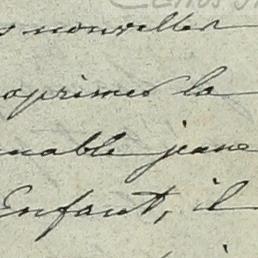 nouvelles
oprimer la
mable jeune
Enfant, il